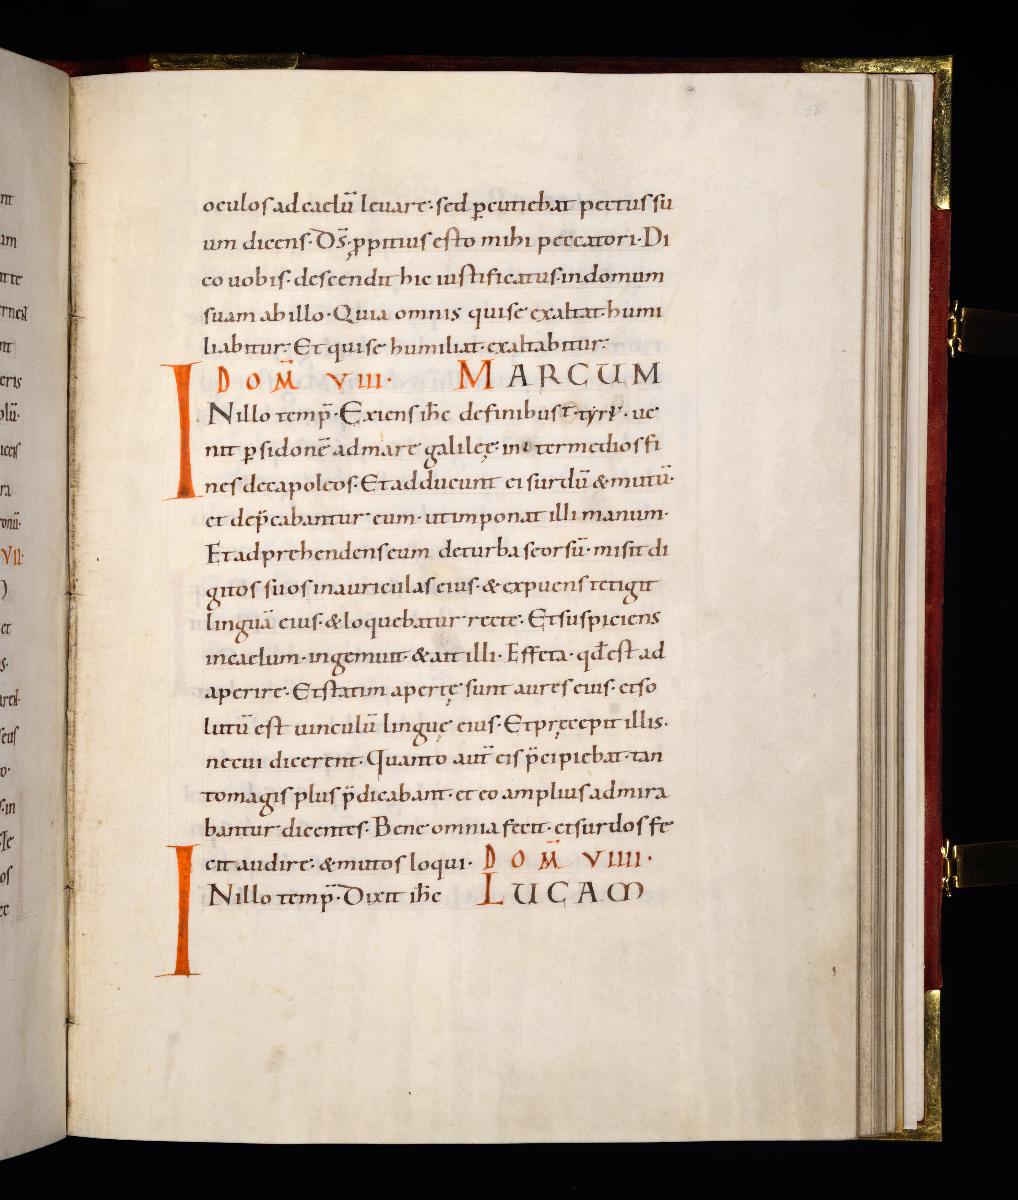 oculos ad caelū leuare· sed ꝑcutiebat pectus su
um dicens· D̄s ꝓpitius esto mihi peccatori· Di
co uobis· descendit hic iustificatus in domum
suam ab illo· Quia omnis qui se exaltat· humi
liabitur; Et qui se humiliat· exaltabitur:
DOM̄ VIII· MARCUM
INillo temp̄· Exiens ih̄c de finibus tyri· ue
nit ꝑ sidonē ad mare galileę· inter medios fi
nes decapoleos· Et adducunt ei surdū & mutū·
et dep̄cabantur eum· ut imponat illi manum·
Et adprehendens eum de turba seorsū· misit di
gitos suos in auriculas eius· & expuens tetigit
linguā eius· & loquebatur recte· Et suspiciens
in caelum· ingemuit· & ait illi· Effeta· qd̄ est ad
aperire· Et statim apertę sunt aures eius· et so
lutū est uinculū linguę eius· Et pręcepit illis·
ne cui dicerent· Quanto aut̄ eis p̄cipiebat· tan
to magis plus p̄dicabant· et eo amplius admira
bantur dicentes· Bene omnia fecit· et surdos fe
cit audire· & mutos loqui· DOM̄ VIIII·
INillo temp̄· Dixit ih̄c LUCAM